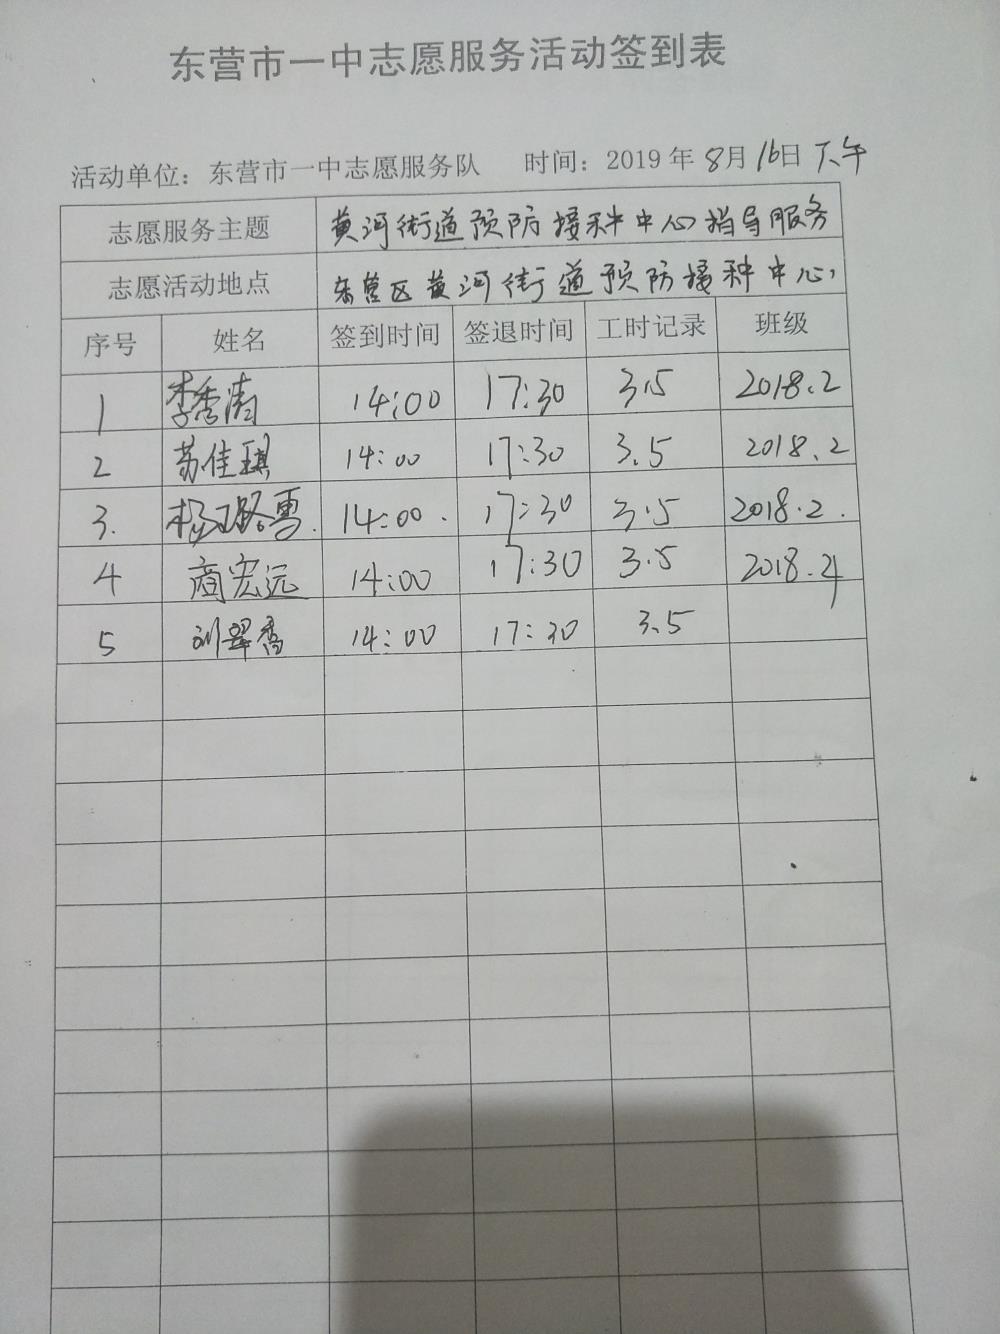 东营市一中志愿服务活动签到表
活动单位：东营市一中志愿服务队 时间：2019年8月16日下午
志愿服务主题 黄河街道预防接种中心指导服务
志愿活动地点 东营区黄河街道预防接种中心
序号 姓名 签到时间 签退时间 工时记录 班级
1 李秀清 14:00 17:30 3.5 2018.2
2 苏佳琪 14:00 17:30 3.5 2018.2
3. 杨璐雪. 14:00. 17:30 3.5 2018.2.
4 商宏远 14:00 17:30 3.5 2018.4
5 刘翠香 14:00 17:30 3.5